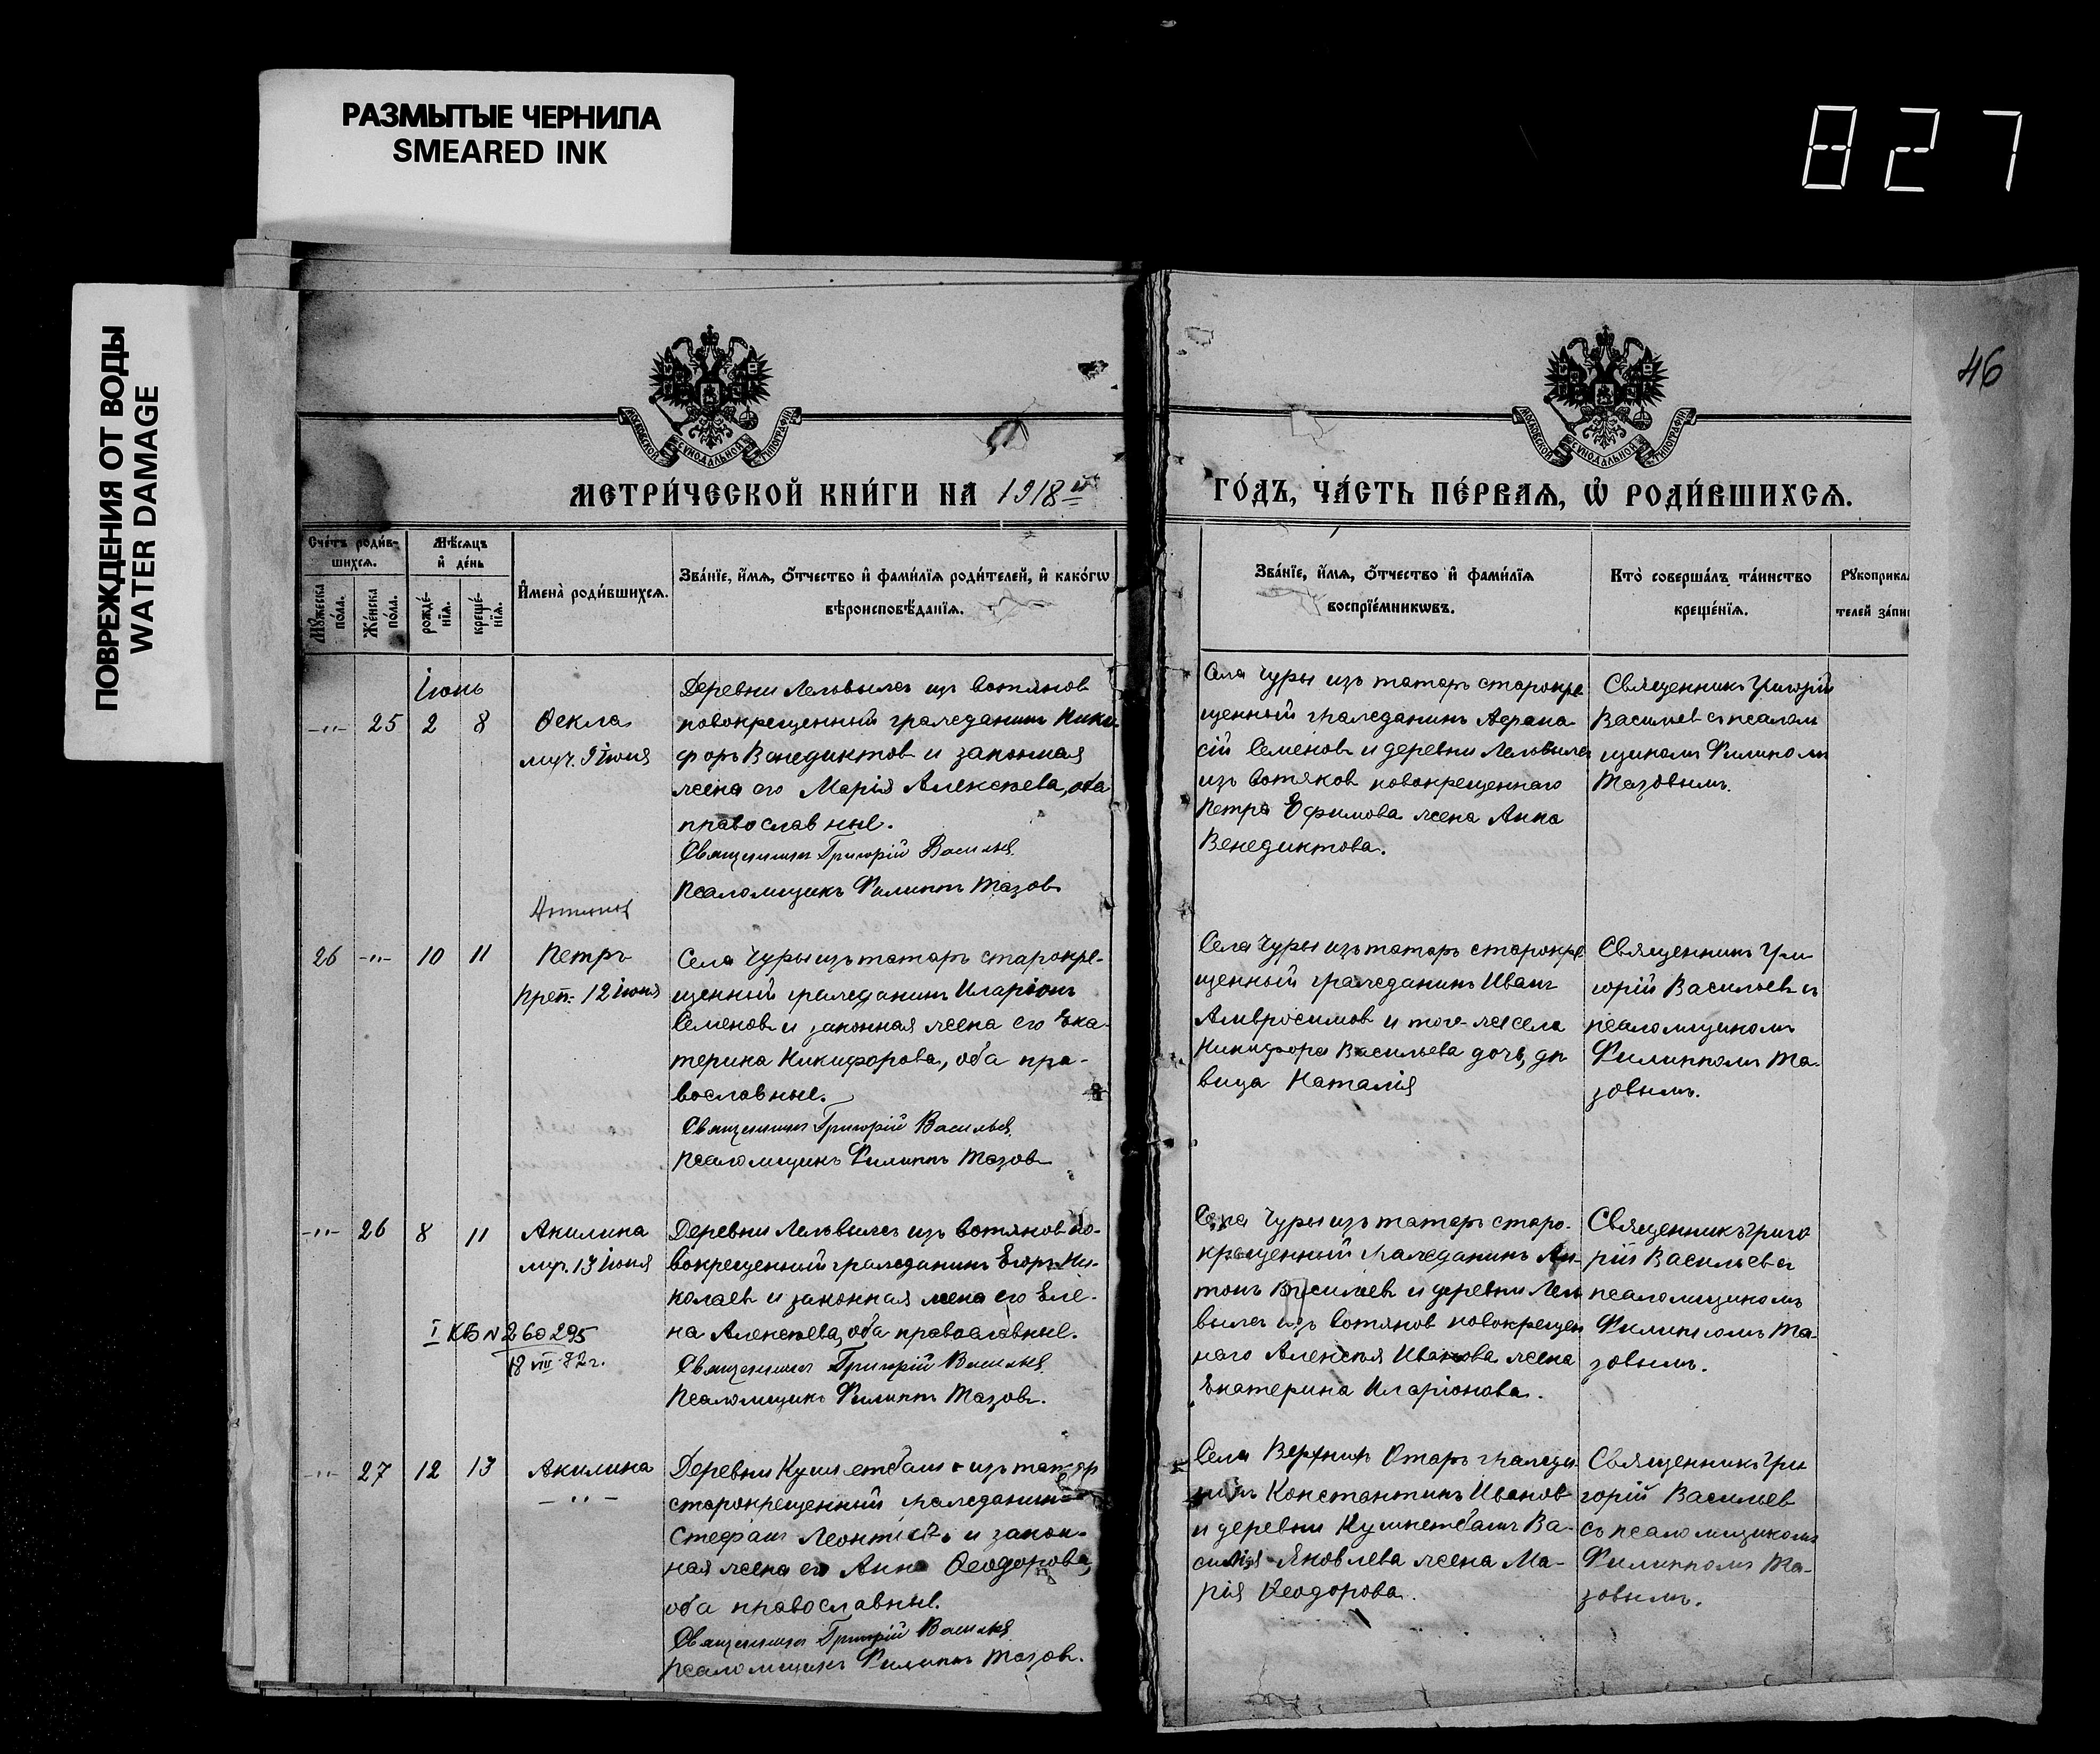 РАЗМЫТЫЕ ЧЕРНИЛА
SMEARED INK
827
ПОВРЕЖДЕНИЯ ОТ ВОДЫ
WATER DAMAGE
46
МОСКОВСКОЙ СѴНОДАЛЬНОЙ ТИПОГРАФІИ
МОСКОВСКОЙ СѴНОДАЛЬНОЙ ТИПОГРАФІИ
МЕТРИ́ЧЕСКОЙ КНИ́ГИ НА 1918 й
ГО́ДЪ, ЧА́СТЬ ПЕ́РВАѦ, Ѡ҆ РОДИ́ВШИХСѦ.
Сче́тъ роди́в-
шихсѧ.
Мѣ́сѧцъ
и҆ де́нь
Мꙋ́жеска по́ла.
Же́нска по́ла.
рожде́-
нїѧ.
креще́-
нїѧ.
И҆мена̀ роди́вшихсѧ.
Зва́нїе, и҆́мѧ, ѻ҆́тчество и҆ фами́лїѧ роди́телей, и҆ како́гѡ
вѣроисповѣ́данїѧ.
Зва́нїе, и҆́мѧ, ѻ҆́тчество и҆ фами́лїѧ
воспрїе́мникѡвъ.
Кто̀ соверша́лъ та́инство
креще́нїѧ.
Рꙋкоприкла
телей запи
Іюнь
-"- 25 2 8
Ѳекла
муч. 9 Іюня
Деревни Лельвыжъ изъ вотяковъ
новокрещенный гражданинъ Ники-
форъ Венедиктовъ и законная
жена его Марія Алексѣева, оба
православные.
Священникъ Григорій Васильев
Псаломщикъ Филиппъ Тазовъ
Села Чуры изъ татаръ старокре
щенный гражданинъ Афана-
сій Семеновъ и деревни Лельвыжъ
изъ вотяковъ новокрещеннаго
Петра Ефимова жена Анна
Венедиктова.
Священникъ Григорій
Васильевъ съ псалом
щикомъ Филиппомъ
Тазовымъ.
26 -"- 10 11
Петръ
Преп. 12 Іюня
Села Чуры изъ татаръ старокре-
щенный гражданинъ Иларіонъ
Семеновъ и законная жена его Ека-
терина Никифорова, оба пра-
вославные.
Священникъ Григорій Васильев
Псаломщикъ Филиппъ Тазовъ
Села Чуры изъ татаръ старокре
щенный гражданинъ Иванъ
Амвросимовъ и того-же села
Никифора Васильева дочь, дѣ
вица Наталія
Священникъ Гри
горій Васильевъ съ
псаломщикомъ
Филиппомъ Та-
зовымъ.
-"- 26 8 11
Акилина
муч. 13 Іюня
I КБ N 260295
18 VIII-82г.
Деревни Лельвыжъ изъ вотяковъ но-
вокрещенный гражданинъ Егоръ Ни-
колаевъ и законная жена его Еле-
на Алексѣева, оба православные.
Священникъ Григорій Васильев
Псаломщикъ Филиппъ Тазовъ.
Села Чуры изъ татаръ старо-
крещенный гражданинъ Ан-
тонъ Васильевъ и деревни Лель
выжъ изъ вотяковъ новокрещен
наго Алексѣя Иванова жена
Екатерина Иларіонова.
Священникъ Григо
рій Васильевъ съ
псаломщикомъ
Филиппомъ Та-
зовымъ.
-"- 27 12 13
Акилина
-"-
Деревни изъ татаръ
старокрещенный гражданинъ
Стефанъ Леонтьевъ и закон-
ная жена его Анна Ѳеодорова,
оба православные.
Священникъ Григорій Васильев
Псаломщикъ Филиппъ Тазовъ.
Села Верхнихъ Отаръ гражда-
нинъ Константинъ Ивановъ
и деревни Ва-
силія Яковлева жена Ма-
рія Ѳеодорова.
Священникъ Гри
горій Васильев
съ псаломщикомъ
Филиппомъ Та-
зовымъ.